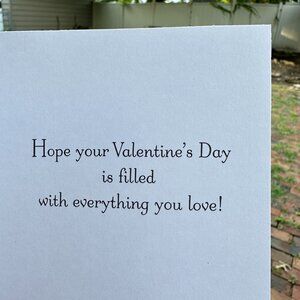 Hope your Valentine's Day
is filled
with everything you love!